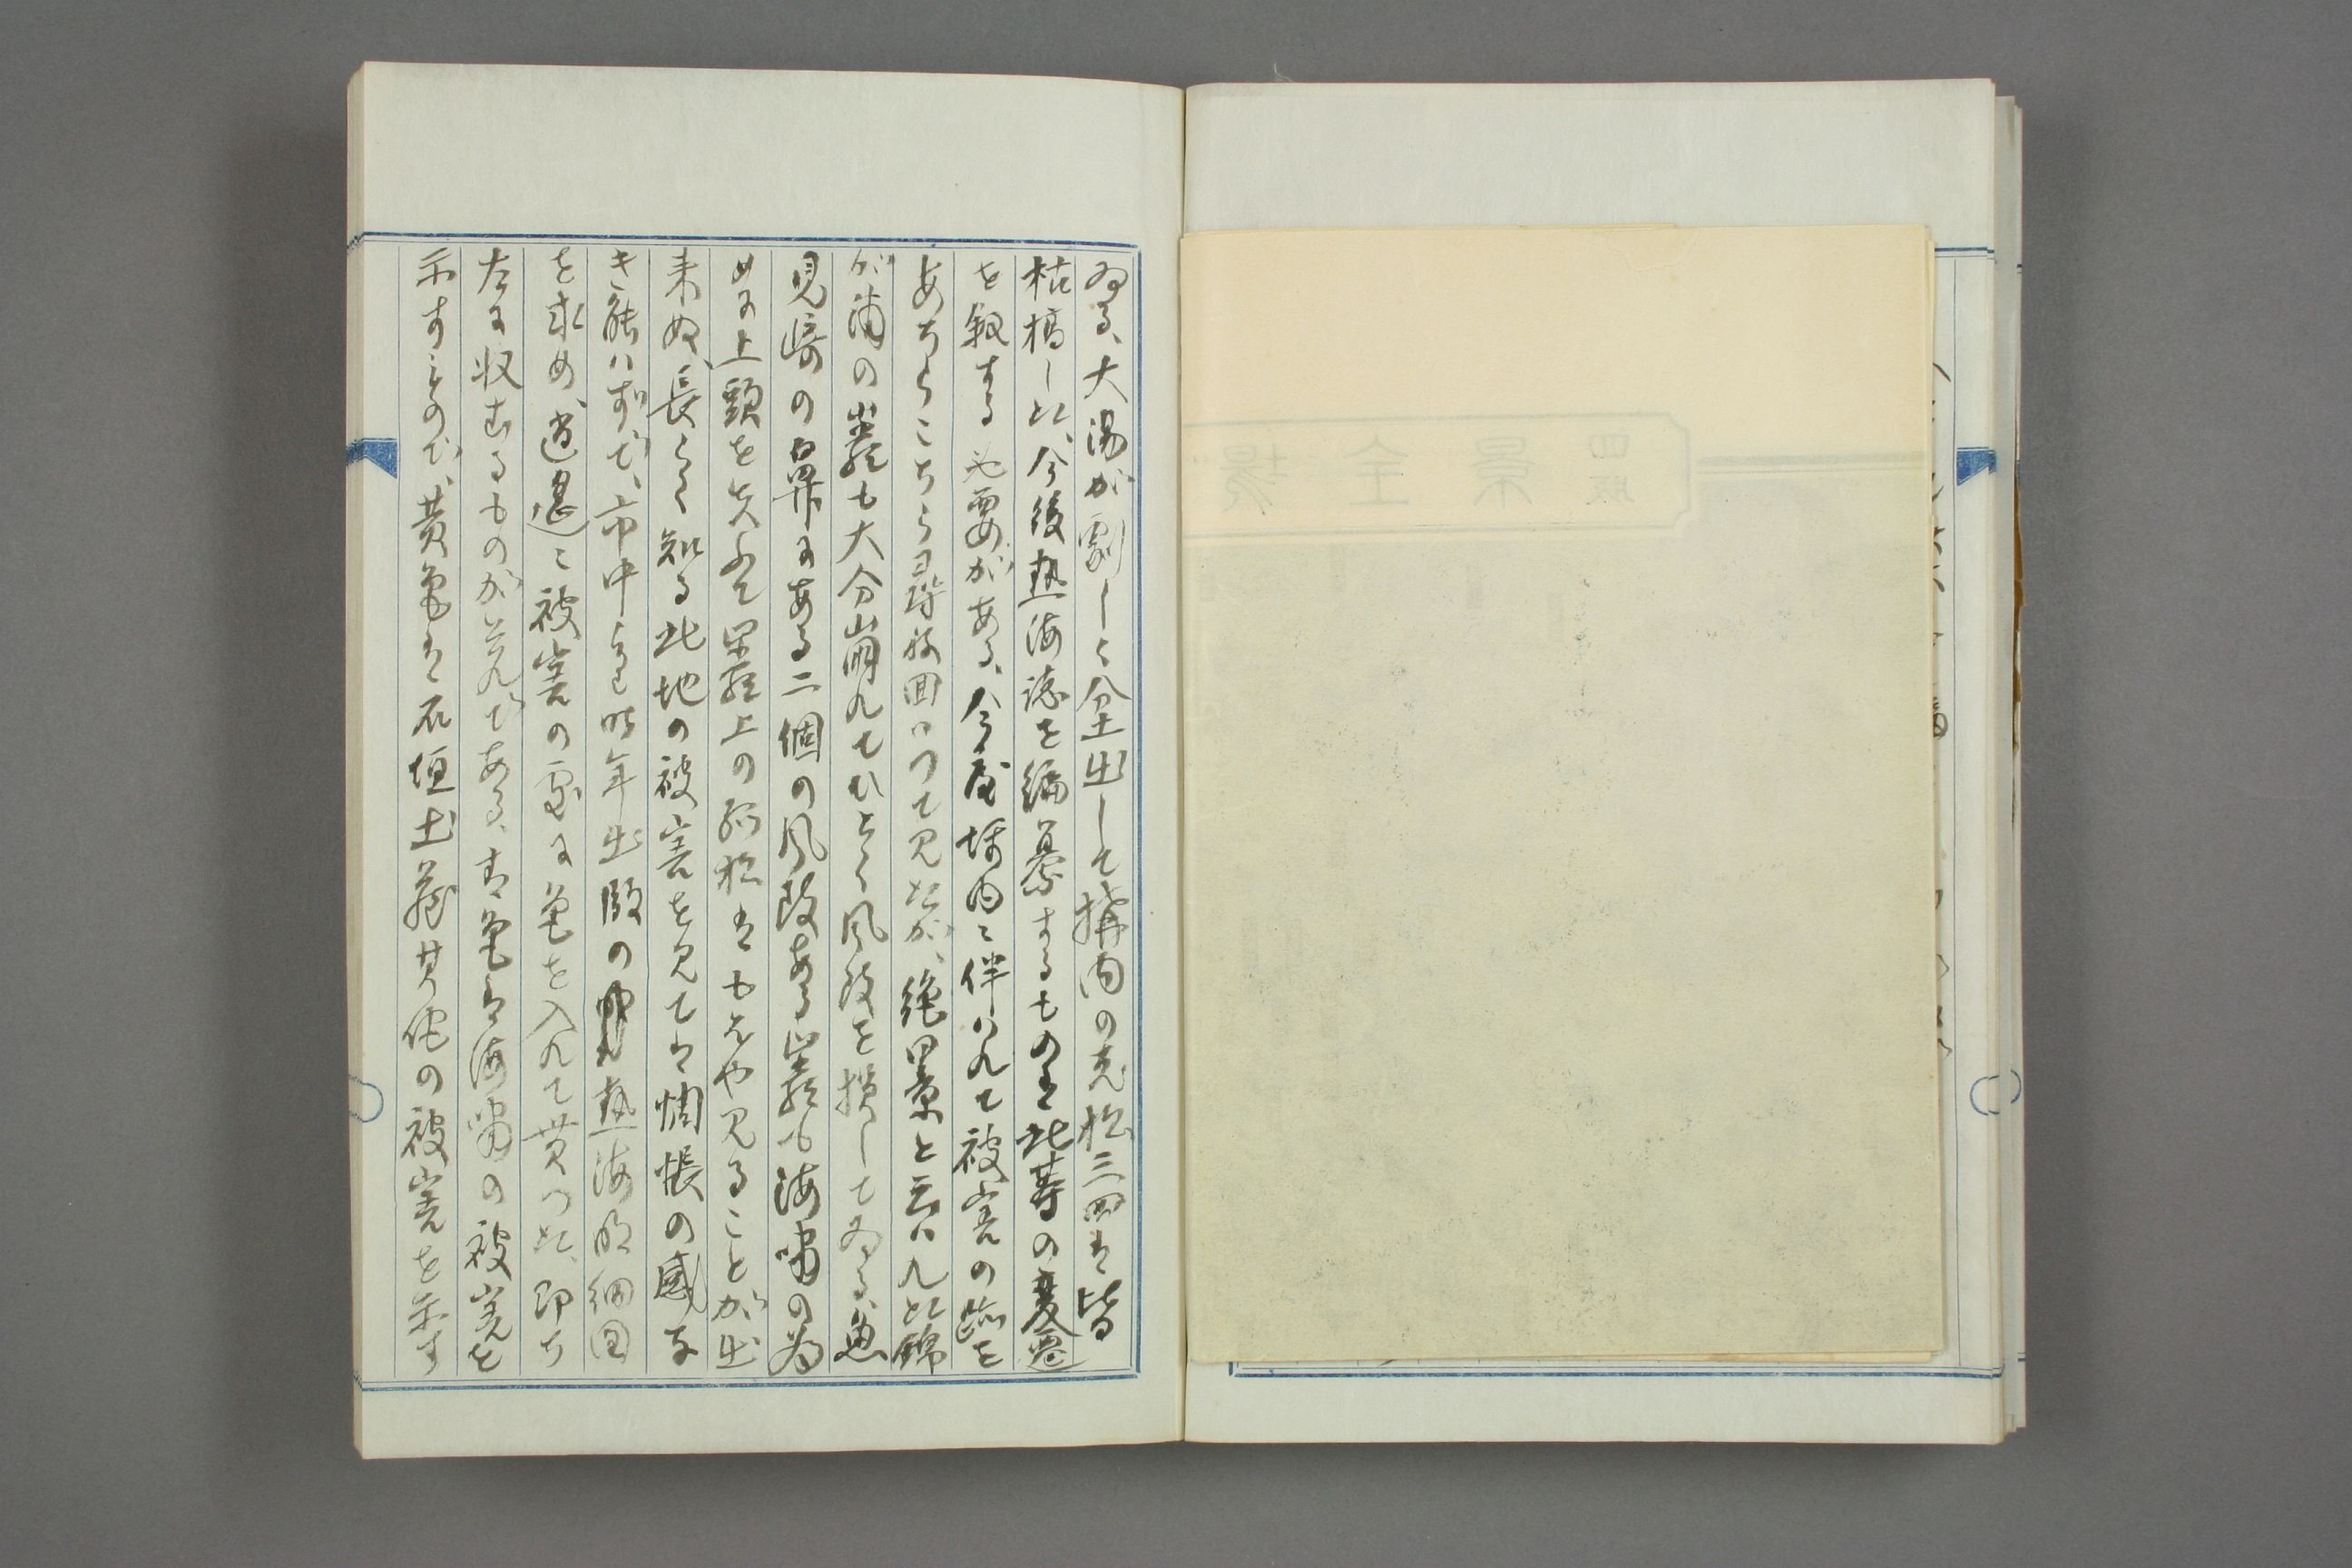 ゐる、大湯が劇しく全出して構内の老松三四は皆
枯槁した、今後熱海誌を編纂するものは此等の変遷
を叙する必要がある、今度坪内に伴はれて被害の跡を
あちらこちら尋ね回はつて見たが、絶景と云はれた錦
が浦の巌も大分崩れてひどく風致を損してゐる、魚
見崎の鼻にある二個の風致ある巌も海嘯の為
めに上頭を失ふて巌上の孤松はもはや見ることが出
来ぬ、長らく知る此地の被害を見ては惆悵の感な
き能はずだ、市中にて昨年出版の熱海明細図
を求め、逍遥に被害の処に色を入れて貰つた、即ち
左に収むるものが是れである、青色は海嘯の被害を
示すものだ、黄色は石垣土蔵其他の被害を示す